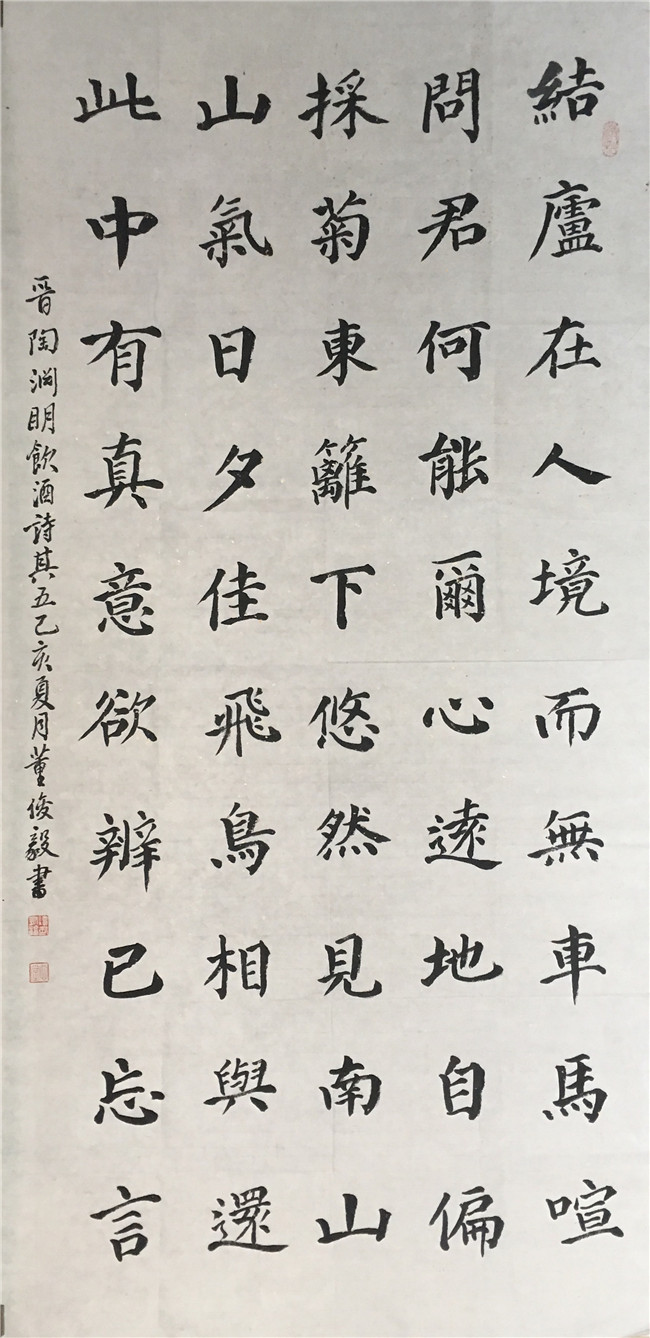 結廬在人境而無車馬喧
問君何能爾心遠地自偏
採菊東籬下悠然見南山
山氣日夕佳飛鳥相與還
此中有真意欲辨已忘言
晉陶淵明飲酒詩其五己亥夏月董俊毅書